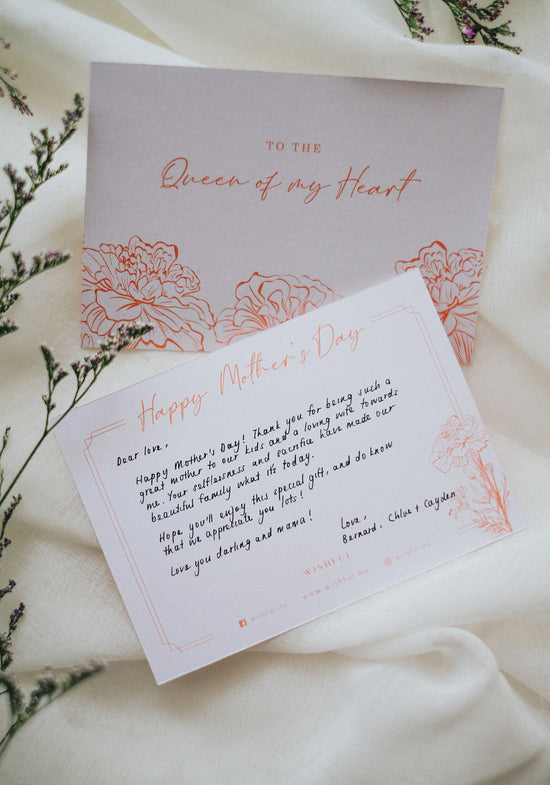 TO THE
Queen of my Heart
Happy Mother's Day
Dear love,
Happy Mother's Day! Thank you for being such a
great mother to our kids and a loving wife towards
me. Your selflessness and sacrifice have made our
beautiful family what it's today.
Hope you'll enjoy this special gift, and do know
that we appreciate you lots!
Love you darling and mama!
Love,
Bernard, Chloe + Cayden
WISHFUL
wishful.my
www.wishful.my
wishful.my